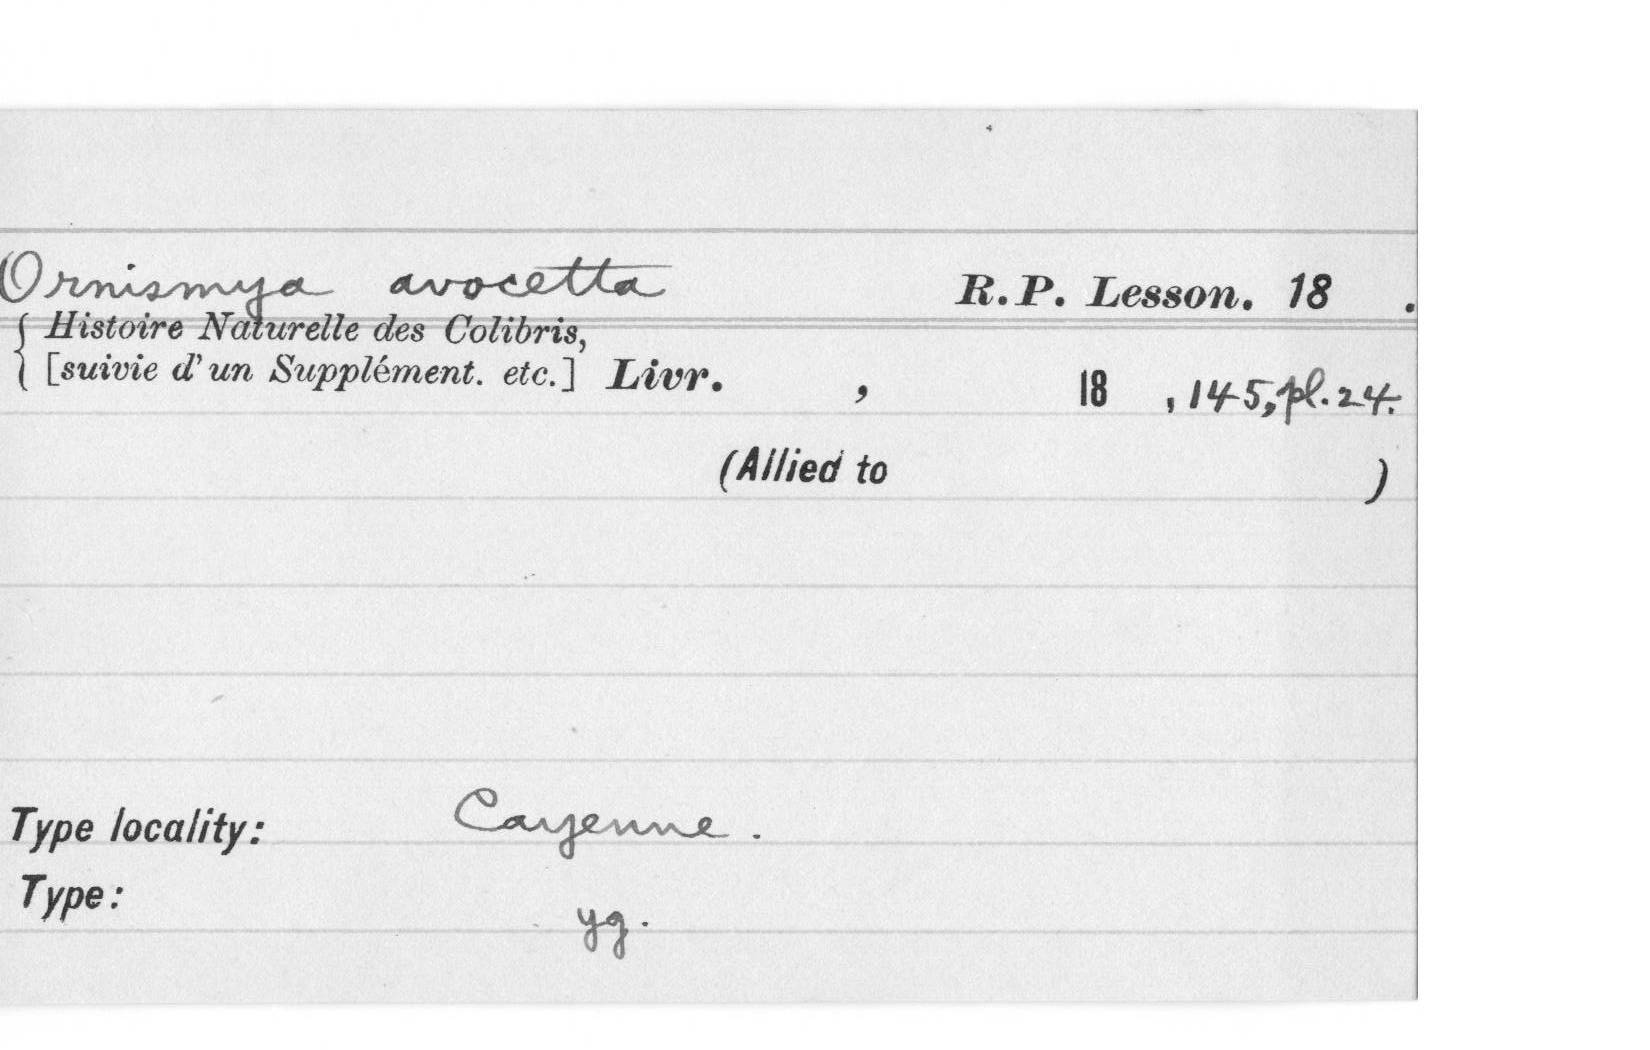 Ornismya avocetta R. P. Lesson. 18 .
Histoire Naturelle des Colibris,
[suivie d'un Supplément. etc.] Livr. , 18 , 145, pl. 24.
(Allied to )
Type locality: Cayenne.
Type: yg.